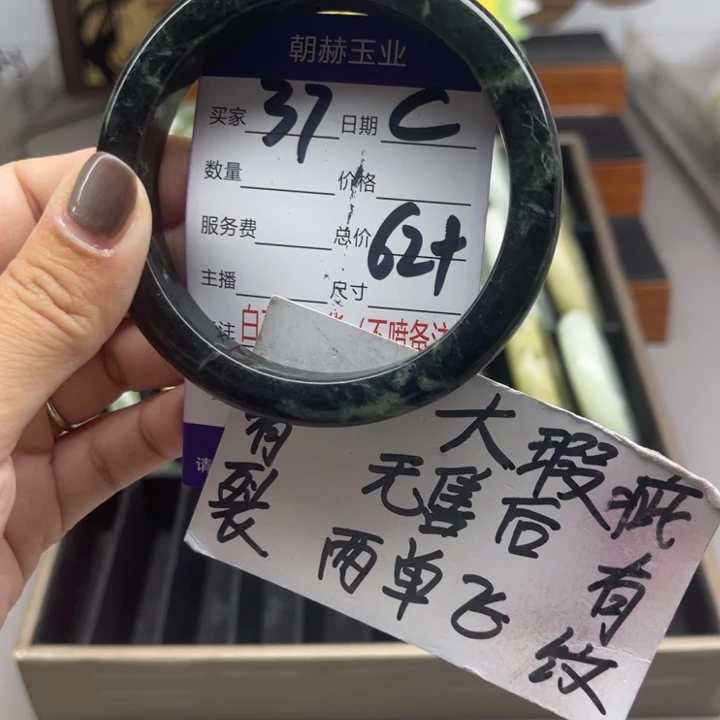 朝赫玉业
买家 37 日期 C
数量 价格
服务费 总价 62+
主播 尺寸
注
请
大瑕疵有纹
有裂
无售后
两单飞